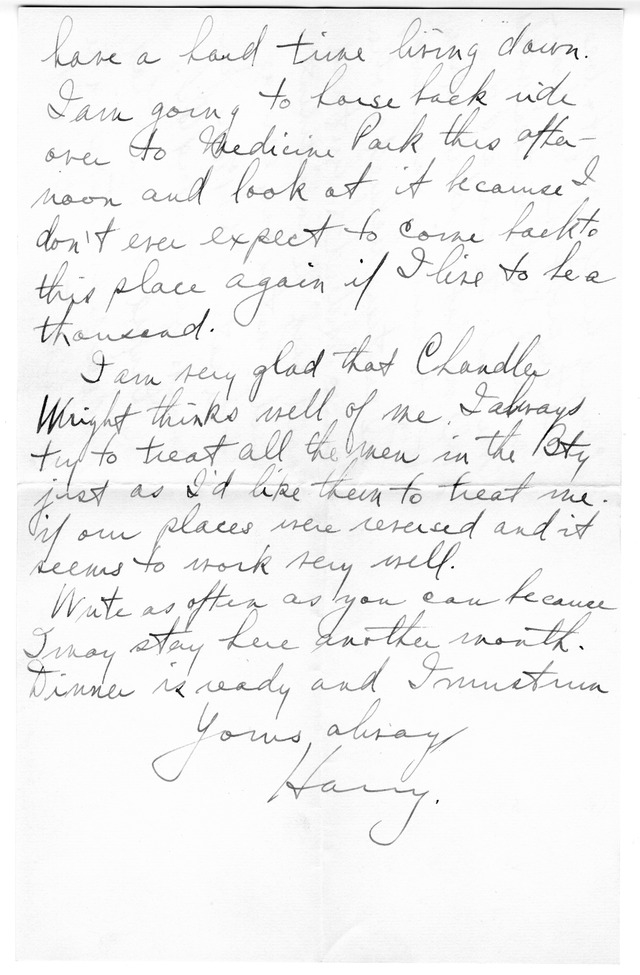 have a hard time living down.
I am going to horse back ride
over to Medicine Park this after-
noon and look at it because I
don't ever expect to come back to
this place again if I live to be a
thousand.
I am very glad that Chandler
Wright thinks well of me. I always
try to treat all the men in the Bty
just as I'd like them to treat me.
if our places were reversed and it
seems to work very well.
Write as often as you can because
I may stay here another month.
Dinner is ready and I must run
Yours always
Harry.